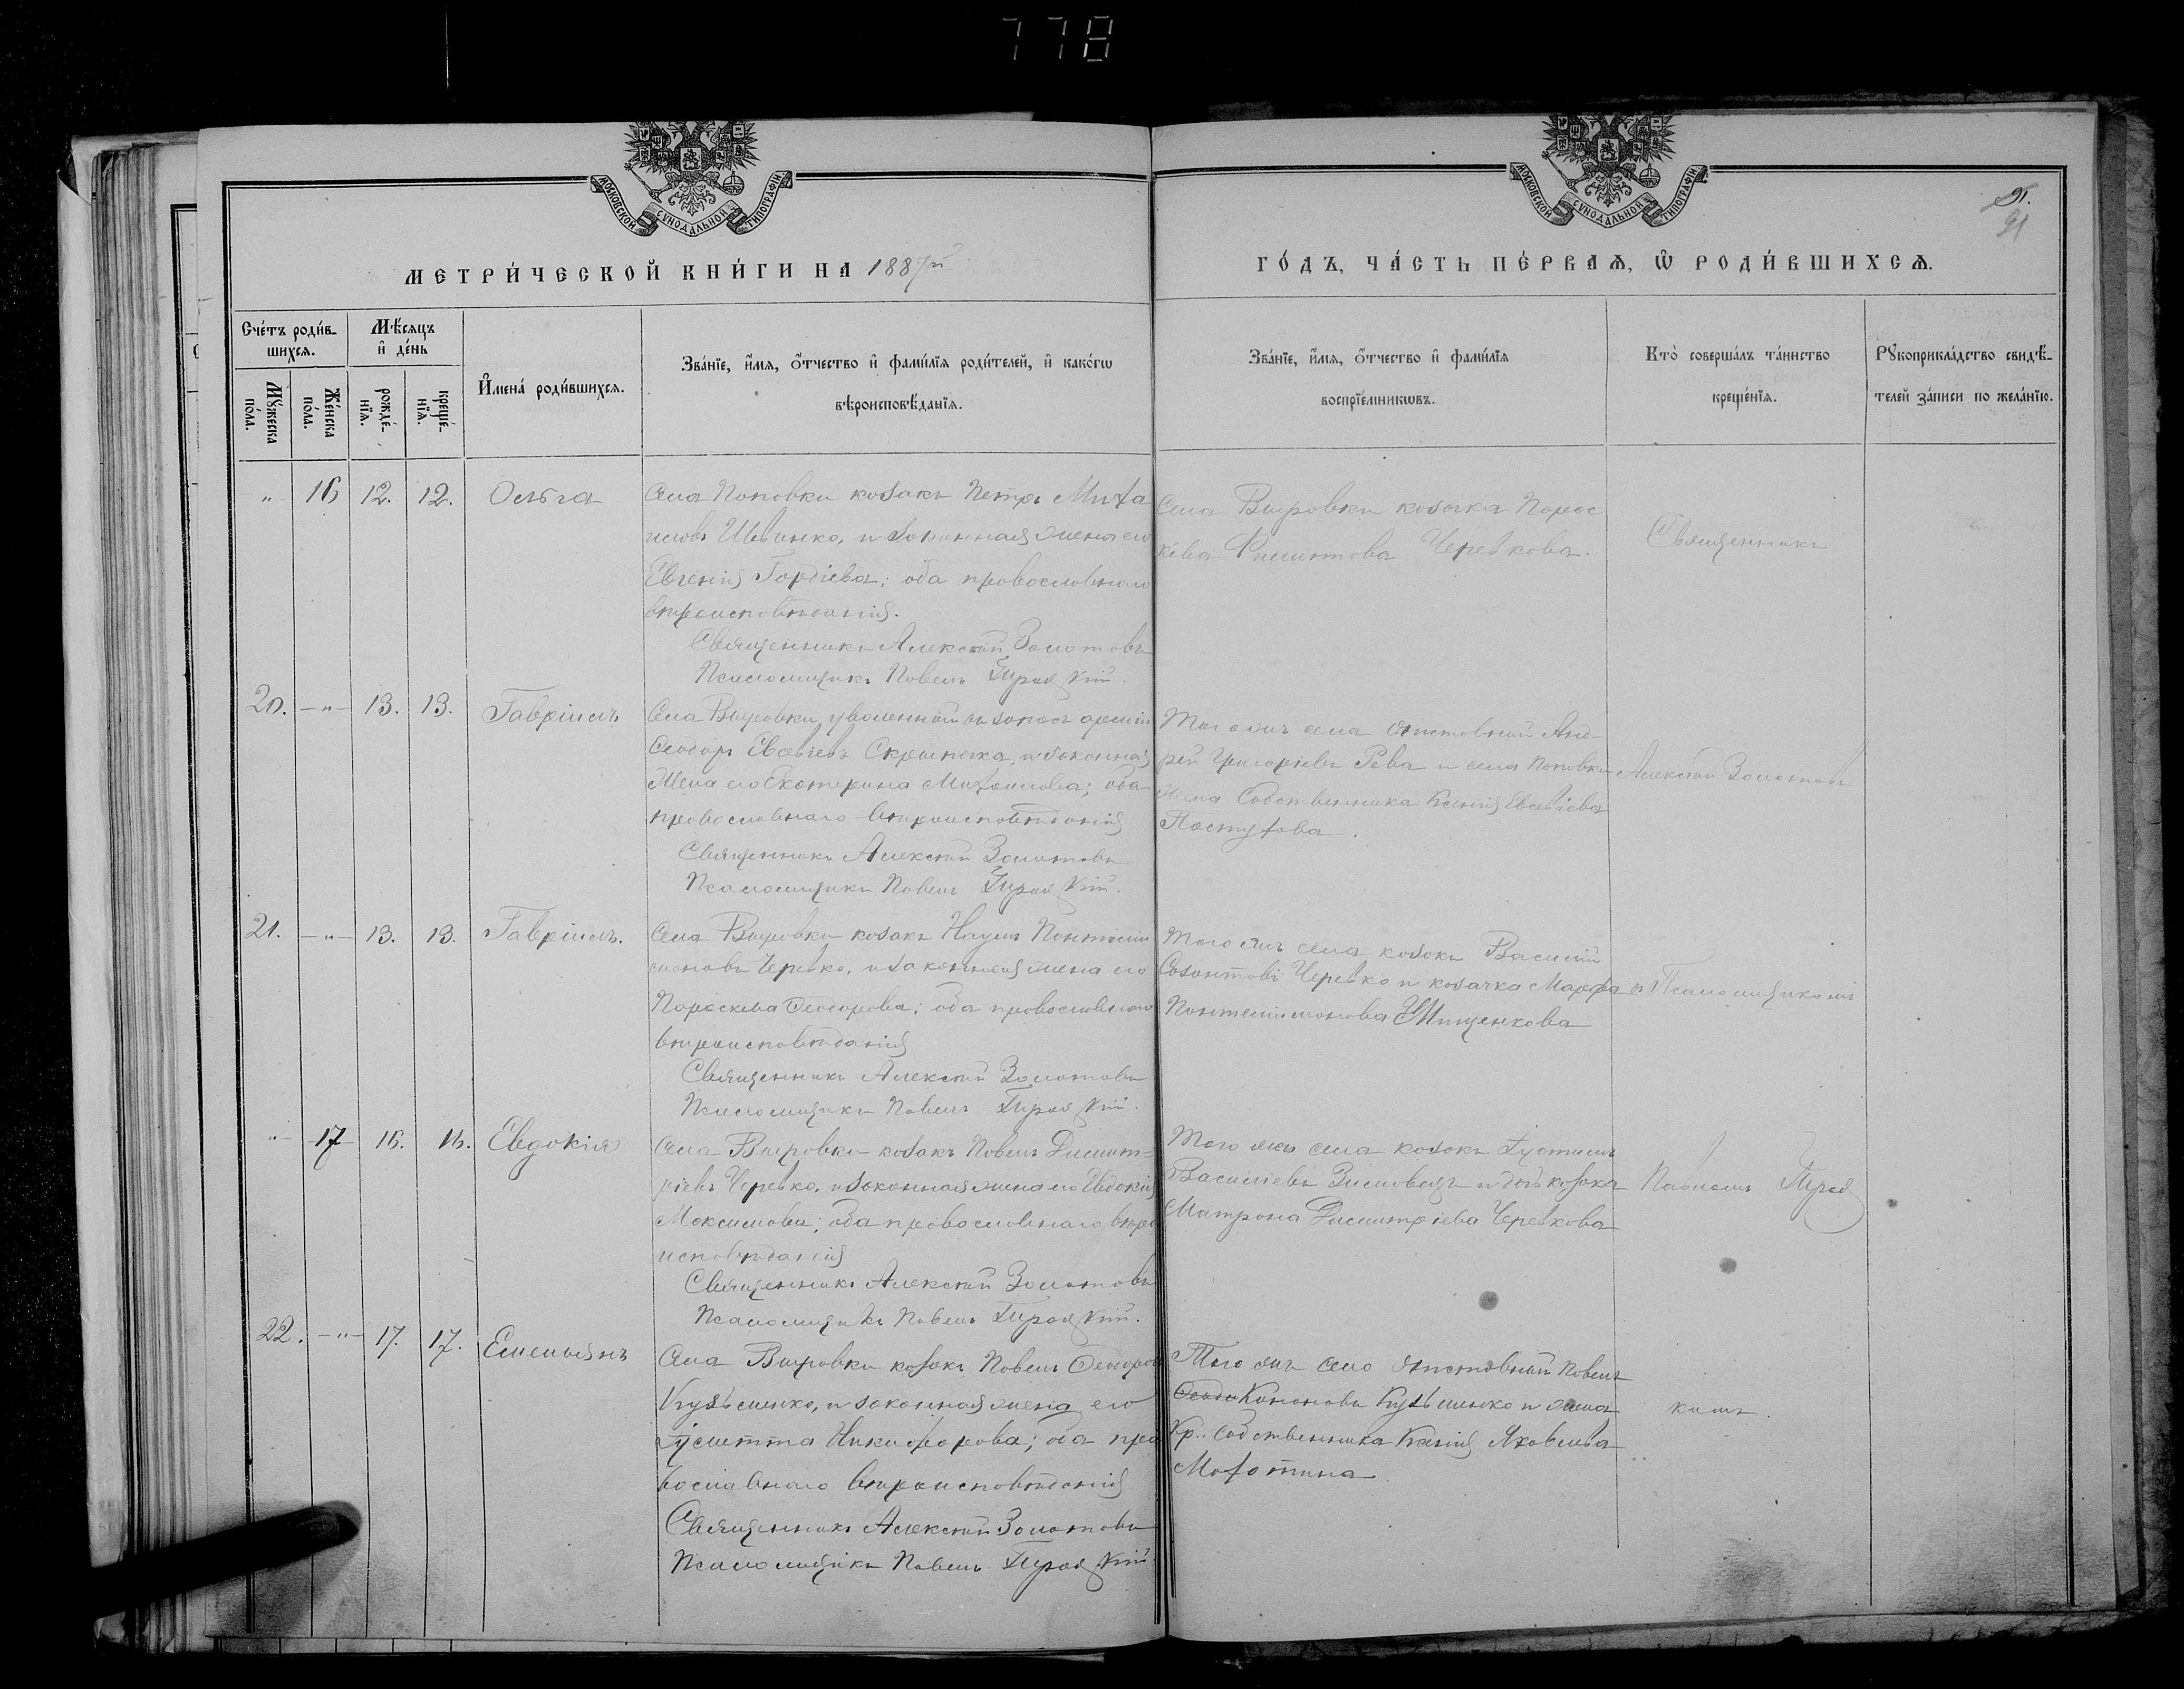 778
МОСКОВСКОЙ СѴНОДАЛЬНОЙ ТИПОГРАФІИ
МОСКОВСКОЙ СѴНОДАЛЬНОЙ ТИПОГРАФІИ
91
МЕТРИ́ЧЕСКОЙ КНИ́ГИ НА 1887й
ГО́ДЪ, ЧА́СТЬ ПЕ́РВАѦ, Ѡ҆ РОДИ́ВШИХСѦ.
Сче́тъ роди́в-
шихсѧ.
Мꙋ́жеска по́ла.
Же́нска по́ла.
Мѣ́сѧцъ и҆ де́нь
рожде́-нїѧ.
креще́-нїѧ.
И҆мена̀ роди́вшихсѧ.
Зва́нїе, и҆́мѧ, ѻ҆́тчество и҆ фами́лїѧ роди́телей, и҆ како́гѡ
вѣроисповѣ́данїѧ.
Зва́нїе, и҆́мѧ, ѻ҆́тчество и҆ фами́лїѧ
воспрїе́мникѡвъ.
Кто̀ соверша́лъ та́инство
креще́нїѧ.
Рꙋкоприкла́дство свидѣ́-
телей за́писи по жела́нїю.
" 16 12. 12. Ольга
Села Поповки козакъ Петръ Миха
иловъ Ильинко, и законная жена его
Евгенія Гордіева; оба православнаго
вѣроисповѣданія.
Священникъ Алексій Золотовъ
Псаломщикъ Павелъ
Села Выровки козачка Парас
кева Филитова Черевкова.
Священникъ
20. -"- 13. 13. Гавріилъ
Села Выровки, уволенный въ запасъ арміи
Ѳеодоръ Евсевіевъ Скрыпочка, и законная
жена его Екатерина Михаилова; оба
православнаго вѣроисповѣданія
Священникъ Алексій Золотовъ
Псаломщикъ Павелъ
Того же села отставной Анд-
рей Григоріевъ Рева и села Поповки
жена Собственника Ксенія Евсевіева
Пастухова.
Алексій Золотовъ
21. -"- 13. 13. Гавріилъ.
Села Выровки козакъ Наумъ Пантелеи
моновъ Черевко, и законная жена его
Параскева Ѳеодорова; оба православнаго
вѣроисповѣданія
Священникъ Алексій Золотовъ
Псаломщикъ Павелъ
Того же села козакъ Василій
Созонтовъ Черевко и козачка Марфа
Пантелеимонова Мищенкова
съ Псаломщикомъ
"- 17 16. 16. Евдокія
Села Выровки козакъ Павелъ Димит-
ріевъ Черевко, и законная жена его Евдокія
Максимова; оба православнаго вѣро
исповѣданія
Священникъ Алексій Золотовъ
Псаломщикъ Павелъ
Того же села козакъ Іустинъ
Василіевъ Зимовецъ и дочь козака
Матрона Димитріева Черевкова
Павломъ
22. -"- 17. 17. Емельянъ
Села Выровки козакъ Павелъ Ѳеодоровъ
Кузьменко, и законная жена его
Никифорова; оба пра
вославнаго вѣроисповѣданія
Священникъ Алексій Золотовъ
Псаломщикъ Павелъ
Того же села отставной Павелъ
Кононовъ Кузьменко и жена
Кр. Собственника Ксенія Яковлева
Махотина
кимъ.